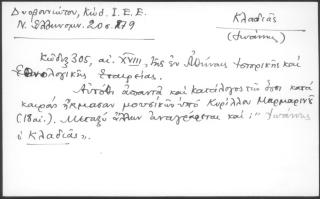 Δυοβουνιώτου, Κώδ. Ι. Ε. Ε.
Ν. Ἑλληνομν. 20 σ. 279
Κλαδιᾶς
(Ἰωάννης)
Κῶδιξ 305, αἰ. XVIII, τῆς ἐν Ἀθήναις Ἱστορικῆς καὶ
Ἐθνολογικῆς Ἑταιρείας.
Αὐτόθι ἀπαντᾶ καὶ κατάλογος τῶν ὅσοι κατὰ
καιρὸν ἤκμασαν μουσικῶν ὑπὸ Κυρίλλου Μαρμαρινοῦ
(18 αἰ.). Μεταξὺ ἄλλων ἀναγράφεται καὶ: "Ἰωάννης
ὁ Κλαδιᾶς".